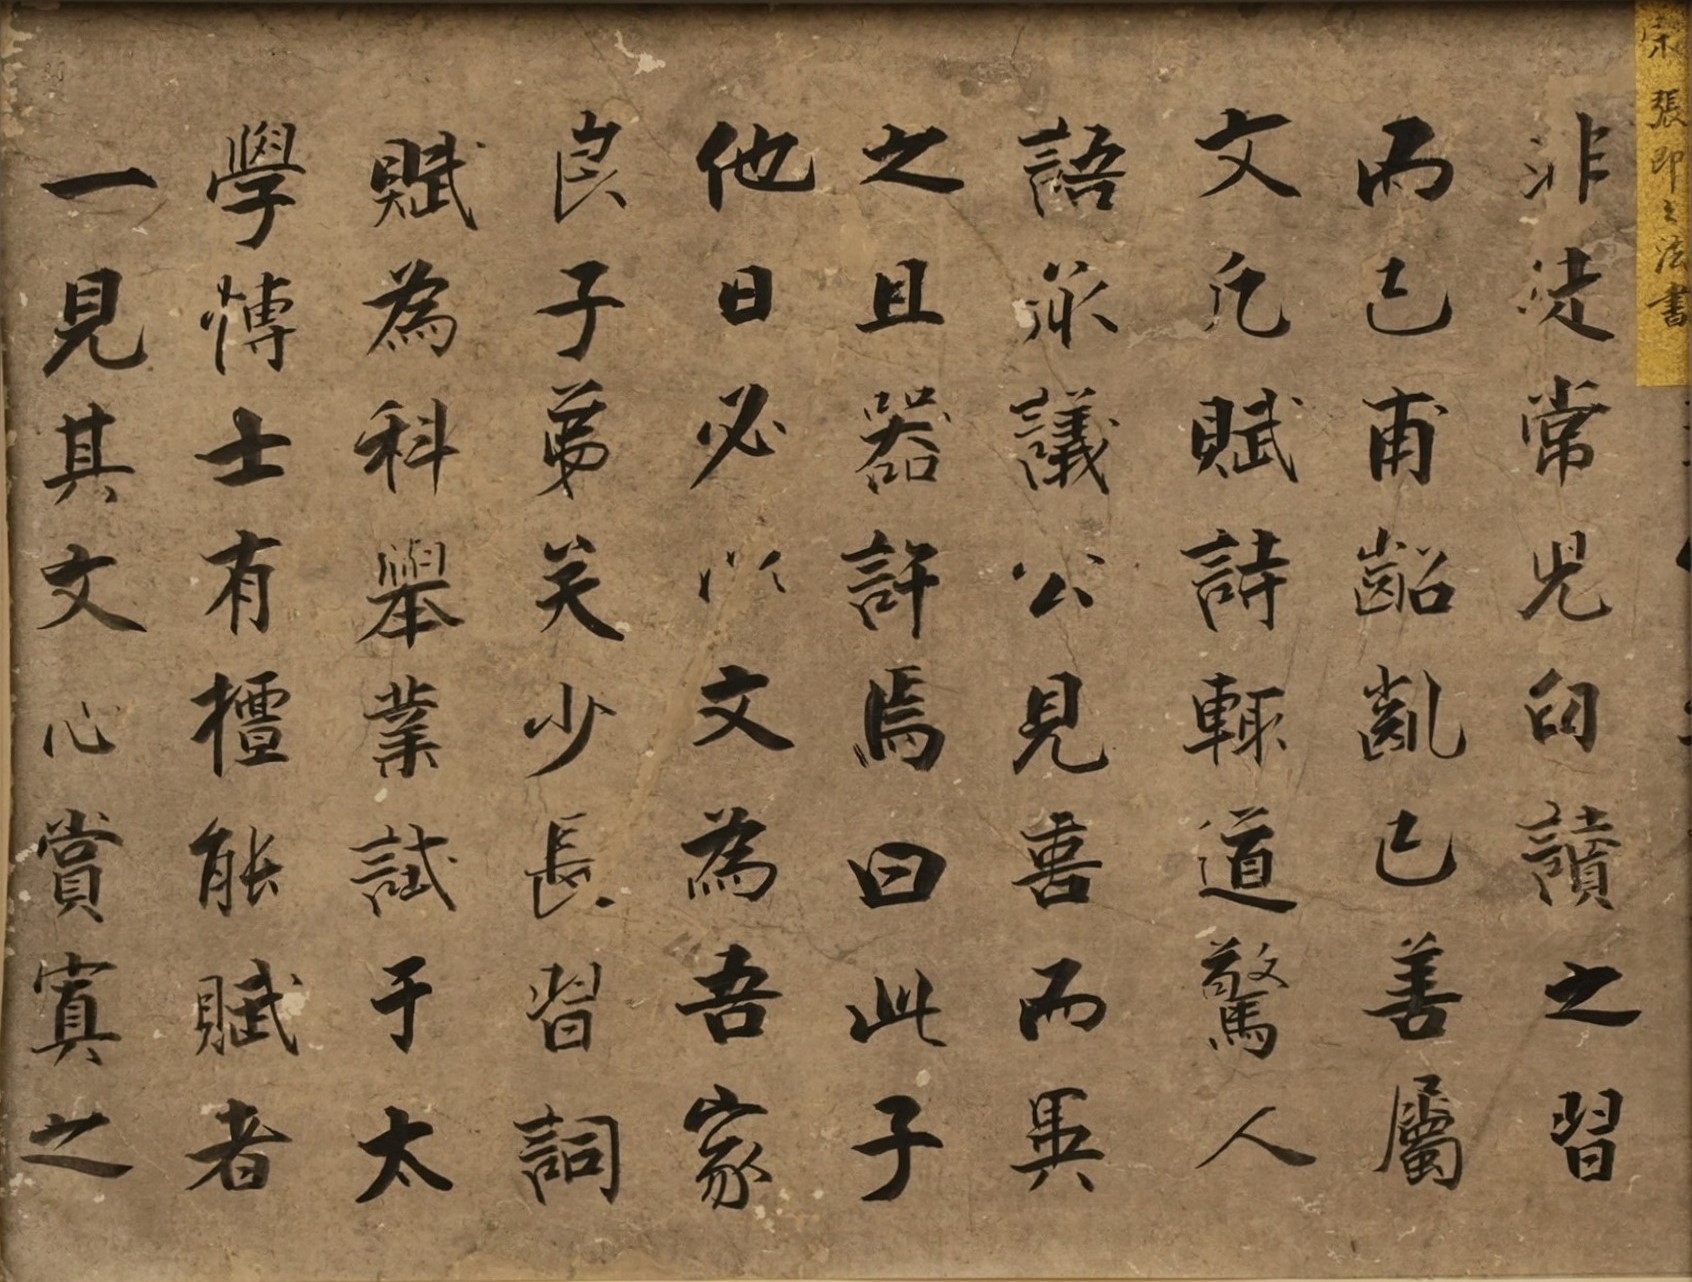 宋張即之法書
非徒常児句讀之習
而已甫齠齓已善屬
文凢賦詩輙道驚人
語永議公見喜而異
之且器許焉曰此子
他日必以文為吾家
良子弟矣少長習詞
賦為科舉業試于太
學博士有擅能賦者
一見其文心賞寘之